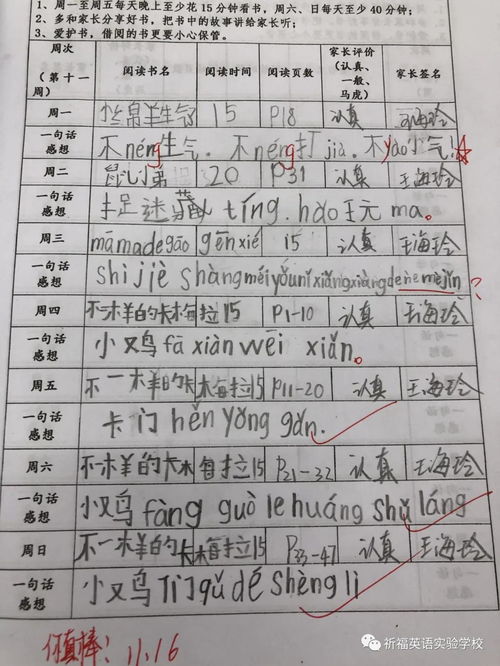 1、周一至周五每天晚上至少花 15 分钟看书，周六、日每天至少 40 分钟；
2、多和家长分享好书，把书中的故事讲给家长听；
3、爱护书，借阅的书更要小心保管。
周次（第十一周） 阅读书名 阅读时间 阅读页数 家长评价（认真、一般、马虎） 家长签名
周一 羊生气 15 P18 认真 王海玲
一句话感想 不néng生气. 不néng打jià. 不yào小气!
周二 20 P31 认真 王海玲
一句话感想 捉迷藏 tíng.hǎo玩 ma。
周三 māmadegāo gēnxié 15 认真 王海玲
一句话感想 shìjiè shàngméiyǒunǐxiǎngxiàngdenemejìn?
周四 不一木羊的卡梅拉 15 P1-10 认真 王海玲
一句话感想 小又鸟fāxiànwēi xiǎn。
周五 不一木羊的卡木每拉 15 P11-20 认真 王海玲
一句话感想 卡门hěnyǒnggǎn.
周六 不一木羊的卡木每拉 15 P21-32 认真 王海玲
一句话感想 小又鸟fàngguòlehuángshǔláng
周日 不一木羊的卡木每拉 15 P33-47 认真 王海玲
一句话感想 小又鸟qǔdéshènglì
你真棒! 11.16
祈福英语实验学校